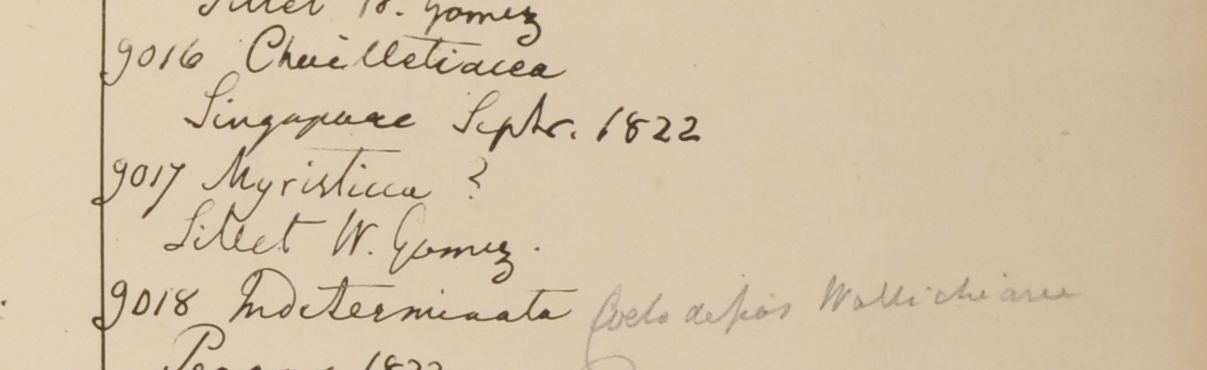 Sillet W. Gomez
9016 Chailletiacea
Singapurae Septr. 1822
9017 Myristicea ?
Sillet W. Gomez.
9018 Indeterminata Coelodepas Wallichianum
1822